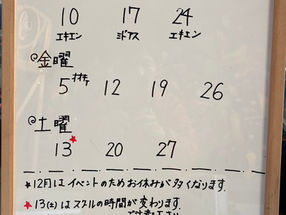 10 17 24
エキエン ミドアス エキエン
@金曜
5 12 19 26
@土曜
13★ 20 27
★12月はイベントのためお休みが多くなります。
★13(土)はスクールの時間が変わります。